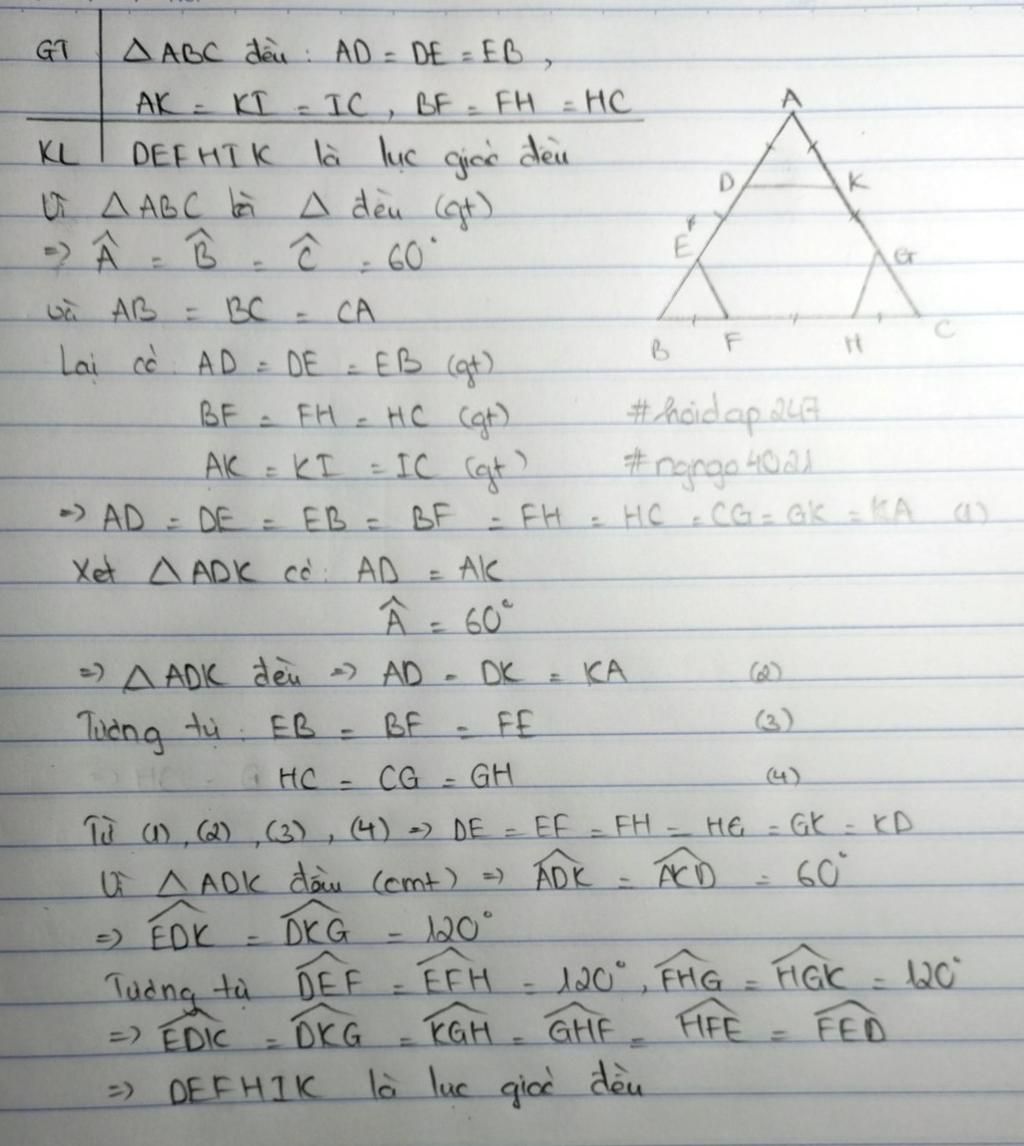 GT △ABC đều : AD = DE = EB ,
AK = KI = IC , BF = FH = HC
KL DEFHIK là lục giác đều
Vì △ABC là △ đều (gt)
=> Â = B̂ = Ĉ = 60°
và AB = BC = CA
Lại có : AD = DE = EB (gt)
BF = FH = HC (gt)
AK = KI = IC (gt)
=> AD = DE = EB = BF = FH = HC = CG = GK = KA (1)
Xét △ADK có : AD = AK
Â = 60°
=> △ADK đều => AD = DK = KA (2)
Tương tự : EB = BF = FE (3)
HC = CG = GH (4)
Từ (1), (2), (3), (4) => DE = EF = FH = HG = GK = KD
Vì △ADK đều (cmt) => ADK = AKD = 60°
=> EDK = DKG = 120°
Tương tự DEF = EFH = 120°, FHG = HGK = 120°
=> EDK = DKG = KGH = GHF = HFE = FED
=> DEFHIK là lục giác đều
A
D K
E G
B F H C
#hoidap247
#ngngo4021